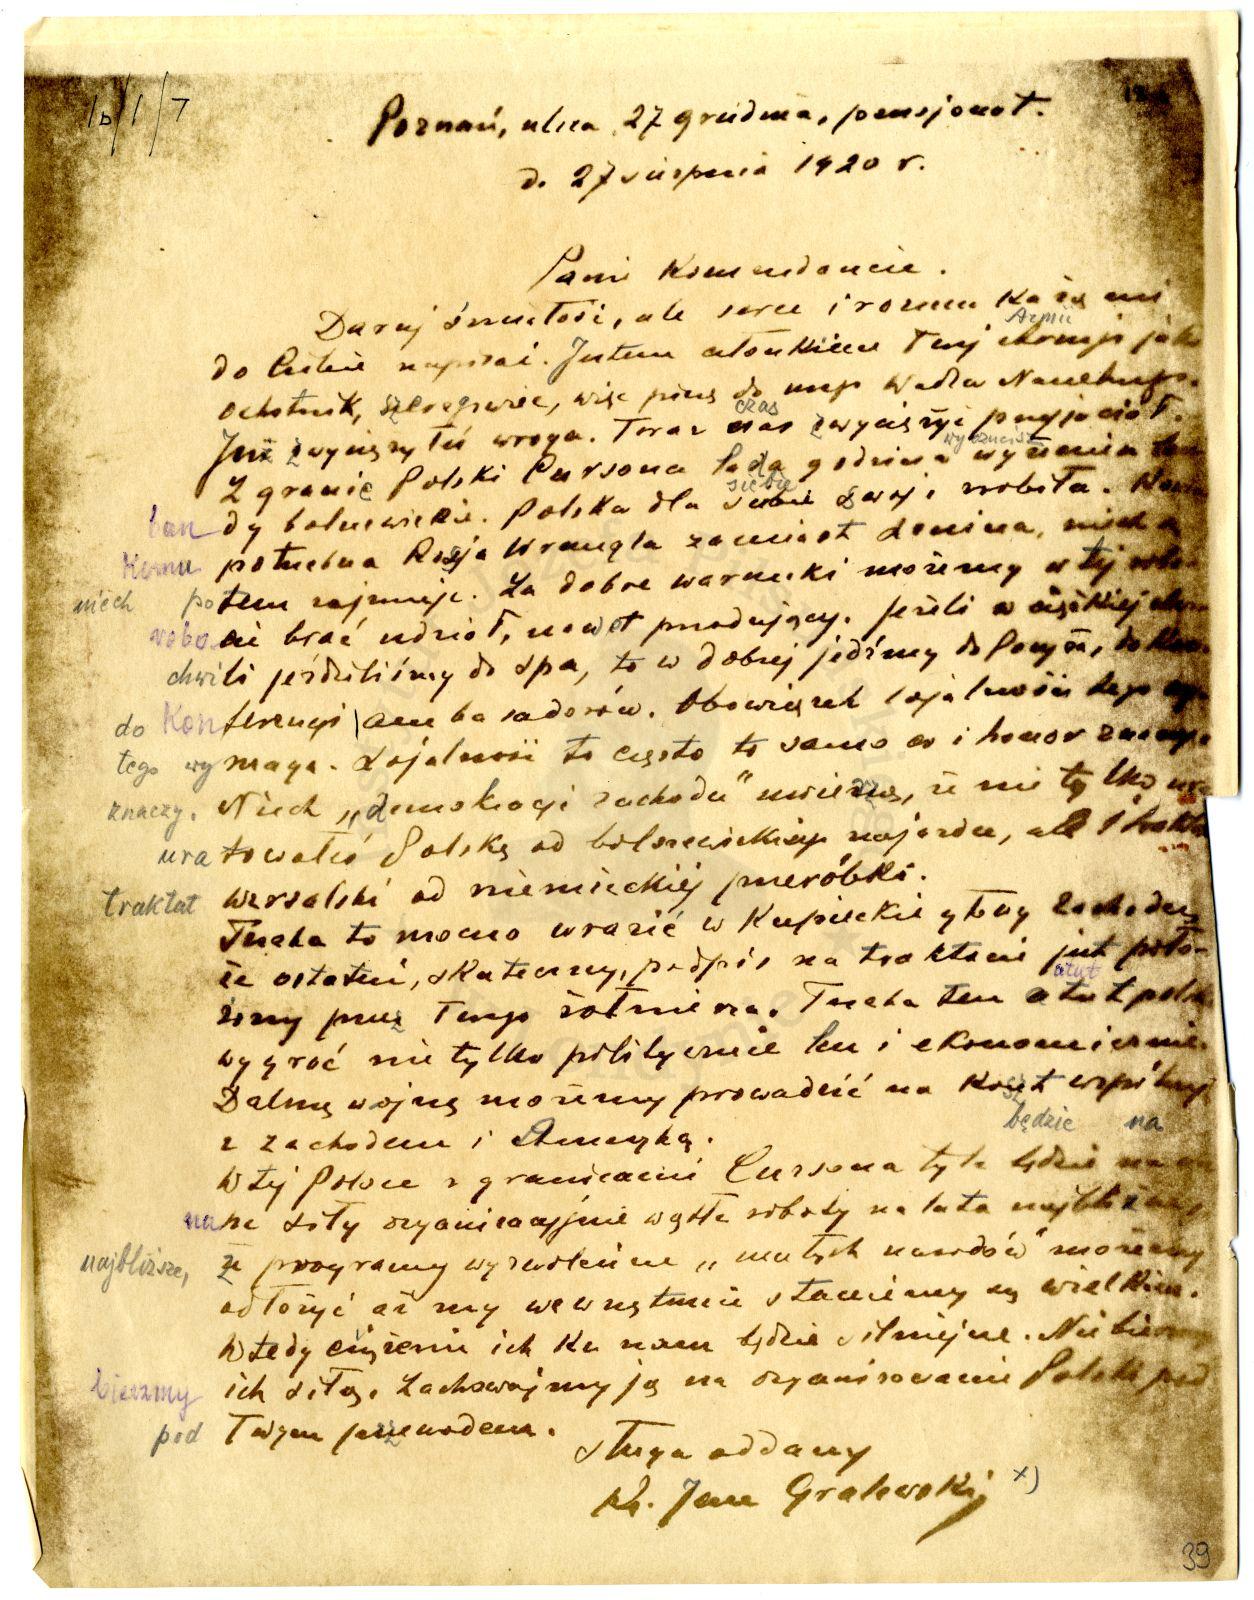 1b/1/7
Poznań, ulica 27 grudnia, pensjonat.
d. 27 sierpnia 1920 r.
Panie Komendancie.
Daruj śmiałość, ale serce i rozum każą mi
Armii
do Ciebie napisać. Jestem członkiem Twej Armji jako
ochotnik, szeregowiec, więc piszę do mego Wodza Naczelnego.
czas
Już zwyciężyłeś wroga. Teraz czas zwyciężyć przyjaciół.
wyrzucisz
Z granic Polski Cursona lada godzina wyrzucisz ban
siebie
ban dy bolszewickie. Polska dla siebie swoje zrobiła. Komu
Komu potrzebna Rosja Wrangla zamiast Lenina, niech się
niech potem zajmuje. Za dobre warunki możemy w tej robo
robo cie brać udział, nawet przodujący. Jeżeli w ciężkiej chwi
chwili jeździliśmy do Spa, to w dobrej jedźmy do Paryża, do Kon
do Konferencji ambasadorów. Obowiązek lojalności tego wy
tego wy maga. Lojalność to często to samo co i honor znaczy.
znaczy. Niech „demokracje zachodu" uwierzą, że nie tylko ura
ura towałeś Polskę od bolszewickiego najazdu, ale i traktat
traktat wersalski od niemieckiej przeróbki.
Trzeba to mocno wrazić w kupieckie głowy Zachodu,
że ostatni, skuteczny, podpis na traktacie jest poło-
atut
żony przez Twego żołnierza. Trzeba ten atut polski
wygrać nie tylko politycznie lecz i ekonomicznie.
Dalszą wojnę możemy prowadzić na koszt wspólny
będzie na
z zachodem i Ameryką.
W tej Polsce z granicami Cursona tyle będzie na na
na sze siły organizacyjnie wątłe roboty na lata najbliższe,
najbliższe, że programy wyzwoleńcze „małych narodów" możemy
odłożyć aż my wewnętrznie staniemy się wielkim.
Wtedy ciążenie ich ku nam będzie silniejsze. Nie bierzmy
bierzmy ich siłą. Zachowajmy ją na organizowanie Polski pod
pod Twym przewodem.
Sługa oddany
Ks. Jan Gralewski x)
39